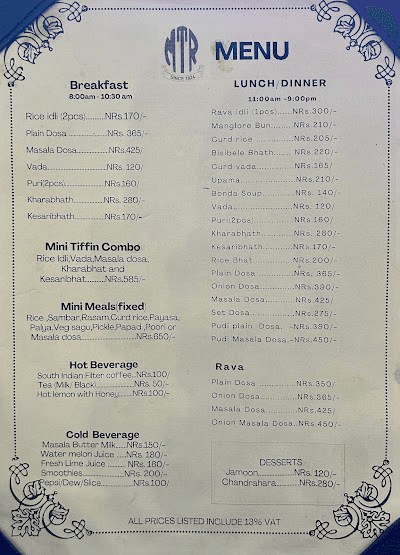 MTR
SINCE 1924
MENU
Breakfast
8:00am - 10:30 am
Rice idli (2pcs)..........NRs.170/-
Plain Dosa ................NRs. 365/-
Masala Dosa..............NRs.425/
Vada..........................NRs. 120/
Puri(2pcs)..................NRs.160/
Kharabhath...............NRs. 280/-
Kesaribhath..............NRs.170/-
Mini Tiffin Combo
Rice Idli,Vada,Masala dosa,
Kharabhat and
Kesaribhat..........NRs.585/-
Mini Meals(fixed)
Rice ,Sambar,Rasam,Curd rice,Payasa,
Palya,Veg sagu,Pickle,Papad ,Poori or
Masala dosa.........................NRs.650/-
Hot Beverage
South Indian Filter coffee..NRs.100/
Tea (Milk/ Black).............NRs. 50/-
Hot lemon with Honey.....NRs.100/-
Cold Beverage
Masala Butter Milk.....NRs.150/-
Water melon Juice .....NRs. 180/-
Fresh Lime Juice ........ NRs. 180/-
Smoothies..................NRs. 200/-
Pepsi/Dew/Slice..........NRs.100/
LUNCH/DINNER
11:00am -9:00pm
Rava idli (1pcs).....NRs.300/-
Manglore Bun.........NRs.210/-
Curd rice ...............NRs.205/-
Bisibele Bhath....... NRs. 220/-
Curd vada..............NRs.165/-
Upama....................NRs.210/-
Bonda Soup........... NRs. 140/-
Vada.......................NRs. 120/
Puri(2pcs)..............NRs.160/
Kharabhath............NRs.280/-
Kesaribhath...........NRs.170/-
Rice Bhat..............NRs.200/-
Plain Dosa ............NRs. 365/-
Onion Dosa............NRs.390/-
Masala Dosa..........NRs.425/
Set Dosa................NRs.275/-
Pudi plain Dosa. -NRs.390/-
Pudi Masala Dosa.-NRs.450/-
Rava
Plain Dosa .............NRs.350/
Onion Dosa.............NRs.365/-
Masala Dosa...........NRs.425/
Onion Masala Dosa..NRs.450/-
DESSERTS
Jamoon.............NRs. 120/-
Chandrahara.........NRs.280/-
ALL PRICES LISTED INCLUDE 13% VAT